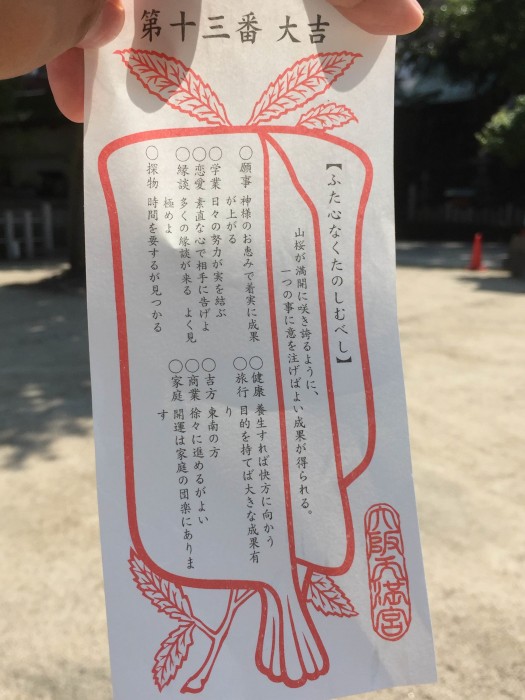 第十三番 大吉
【ふた心なくたのしむべし】
山桜が満開に咲き誇るように、
一つの事に意を注げばよい成果が得られる。
○願事 神様のお恵みで着実に成果
が上がる
○学業 日々の努力が実を結ぶ
○恋愛 素直な心で相手に告げよ
○縁談 多くの縁談が来る よく見
極めよ
○探物 時間を要するが見つかる
○健康 養生すれば快方に向かう
○旅行 目的を持てば大きな成果有
り
○吉方 東南の方
○商業 徐々に進めるがよい
○家庭 開運は家庭の団楽にありま
す
大阪天満宮